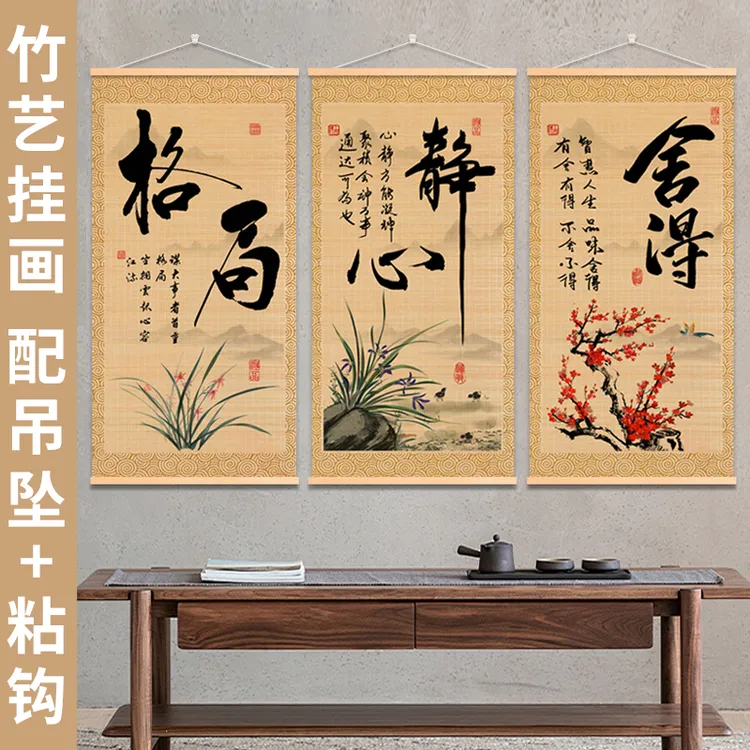 竹艺挂画 配吊坠+粘钩
格局
谋大事者首重
格局
坐拥雲 心容
江
静心
心静方能凝神
聚精会神万事
通达可為也
舍得
智慧人生 品味舍得
有舍有得 不舍不得